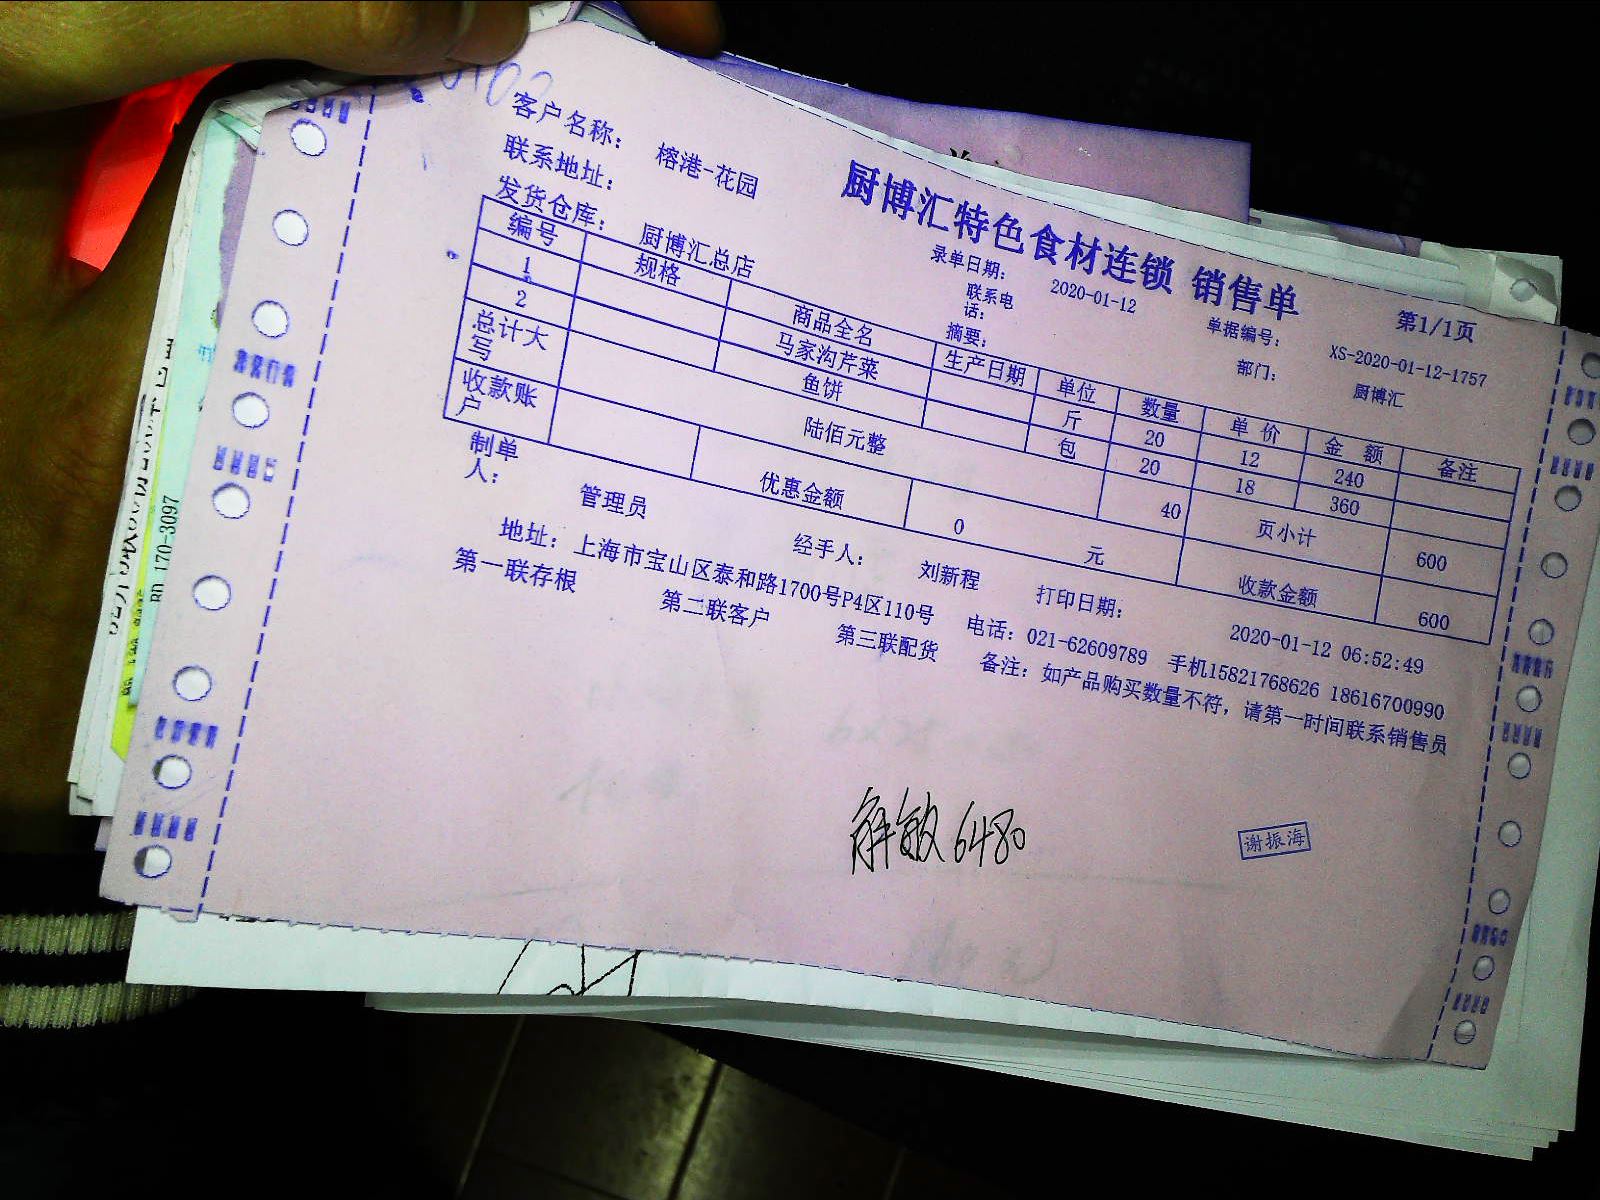 厨博汇特色食材连锁 销售单
第1/1页
客户名称： 榕港-花园 录单日期： 2020-01-12 单据编号： XS-2020-01-12-1757
联系地址： 联系电话： 部门： 厨博汇
发货仓库： 厨博汇总店 摘要：
编号 规格 商品全名 生产日期 单位 数量 单价 金额 备注
1 马家沟芹菜 斤 20 12 240
2 鱼饼 包 20 18 360
总计大写 陆佰元整 40 页小计 600
收款账户 优惠金额 0 元 收款金额 600
制单人： 管理员 经手人： 刘新程 打印日期： 2020-01-12 06:52:49
地址：上海市宝山区泰和路1700号P4区110号 电话：021-62609789 手机15821768626 18616700990
第一联存根 第二联客户 第三联配货 备注：如产品购买数量不符，请第一时间联系销售员
解敏 6480
谢振海
170-3097